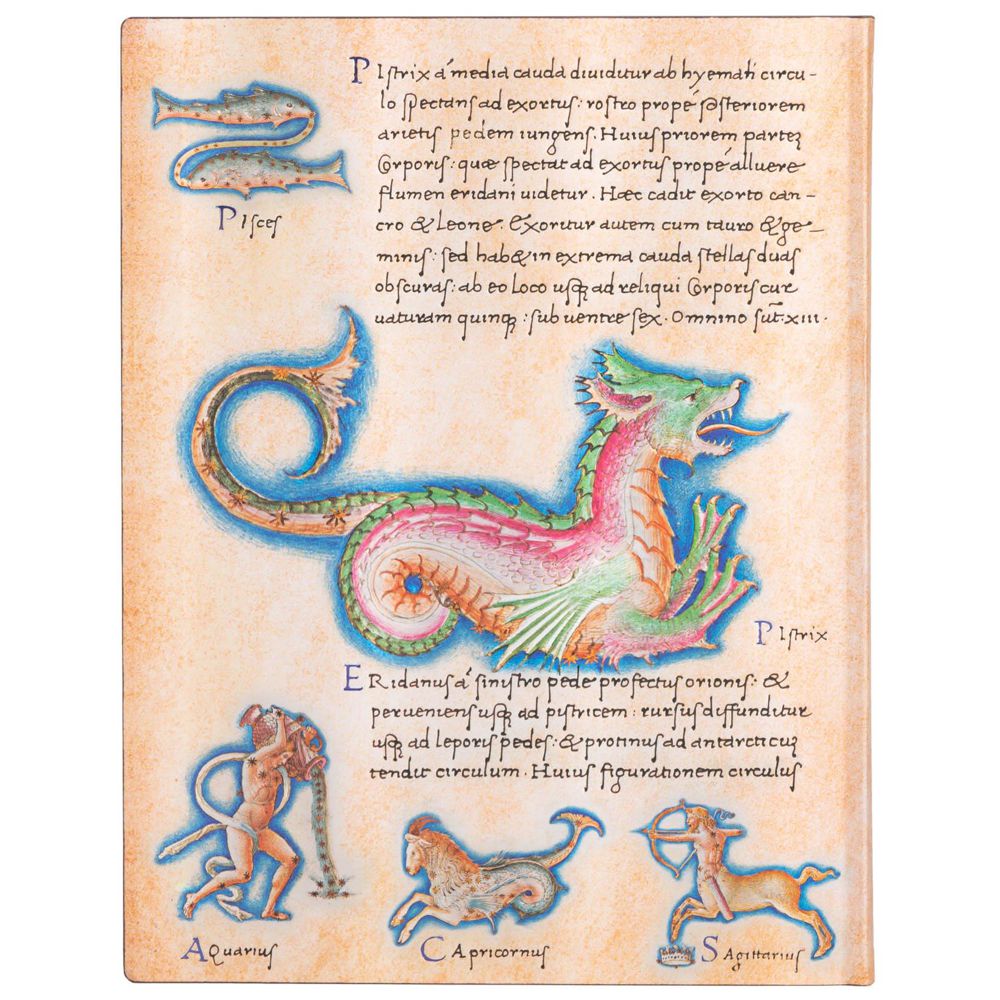 PIſtrix á media cauda diuiditur ab hyemali circu-
lo ſpectans ad exortus: roſtro propé poſteriorem
arietis pedem iungens. Huius priorem partez
Corporis: quæ ſpectat ad exortus propé alluere
flumen eridani uidetur. Hæc cadit exorto can-
cro & Leone. Exoritur autem cum tauro & ge-
minis: ſed hab& in extrema cauda ſtellas duas
obſcuras: ab eo loco uſq; ad reliqui Corporis cur
uaturam quinq; : ſub uentre ſex. Omnino sūt. xiii.
PIſces
PIſtrix
ERidanus á ſiniſtro pede profectus orionis: &
perueniens uſq; ad piſtricem: rurſus diffunditur
uſq; ad leporis pedes: & protinus ad antarcticuz
tendit circulum. Huius figurationem circulus
AQuarius
CApricornus
SAgittarius